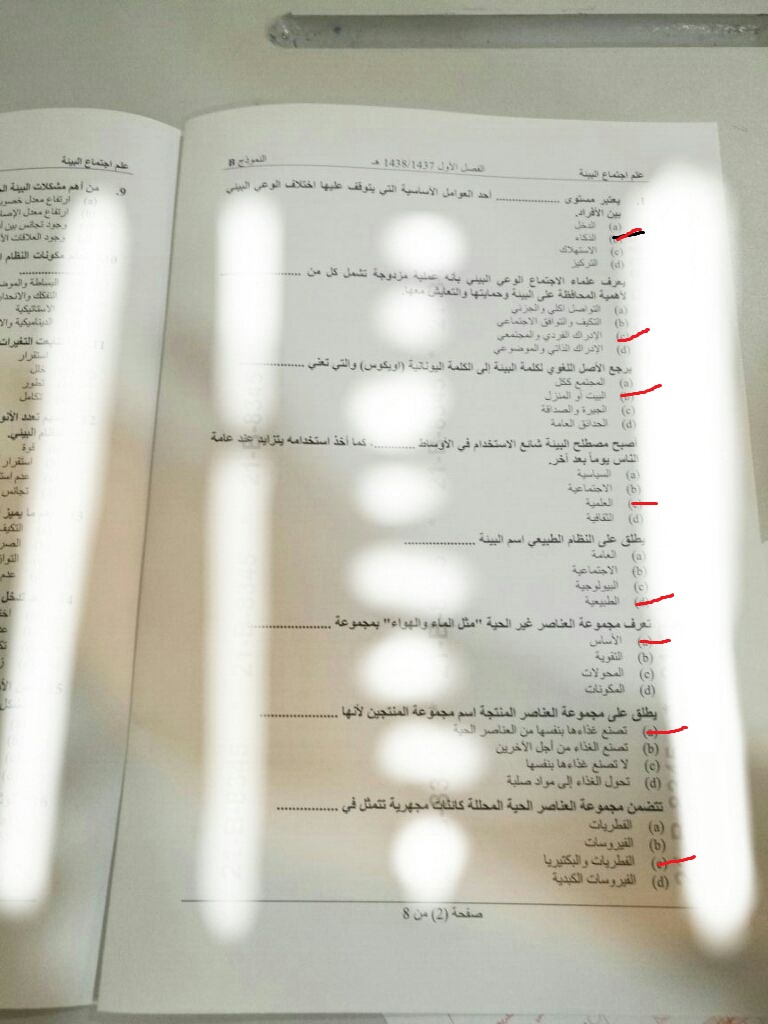 علم اجتماع البيئة الفصل الأول 1438/1437 هـ النموذج B
1. يعتبر مستوى ................ أحد العوامل الأساسية التي يتوقف عليها اختلاف الوعي البيئي
بين الأفراد.
(a) الدخل
الذكاء
(c) الاستهلاك
(d) التركيز
يعرف علماء الاجتماع الوعي البيئي بأنه عملية مزدوجة تشمل كل من ................
لأهمية المحافظة على البيئة وحمايتها والتعايش معها.
(a) التواصل الكلي والجزئي
(b) التكيف والتوافق الاجتماعي
(c) الإدراك الفردي والمجتمعي
(d) الإدراك الذاتي والموضوعي
يرجع الأصل اللغوي لكلمة البيئة إلى الكلمة اليونانية (اويكوس) والتي تعني ................
(a) المجتمع ككل
(b) البيت أو المنزل
(c) الجيرة والصداقة
(d) الحدائق العامة
أصبح مصطلح البيئة شائع الاستخدام في الأوساط ............ كما أخذ استخدامه يتزايد عند عامة
الناس يوماً بعد آخر.
(a) السياسية
(b) الاجتماعية
(c) العلمية
(d) الثقافية
يطلق على النظام الطبيعي اسم البيئة ................
(a) العامة
(b) الاجتماعية
(c) البيولوجية
(d) الطبيعية
تعرف مجموعة العناصر غير الحية "مثل الماء والهواء" بمجموعة ................
(a) الأساس
(b) التقوية
(c) المحولات
(d) المكونات
يطلق على مجموعة العناصر المنتجة اسم مجموعة المنتجين لأنها ................
(a) تصنع غذاءها بنفسها من العناصر الحية
(b) تصنع الغذاء من أجل الآخرين
(c) لا تصنع غذاءها بنفسها
(d) تحول الغذاء إلى مواد صلبة
تتضمن مجموعة العناصر الحية المحللة كائنات مجهرية تتمثل في ................
(a) الفطريات
(b) الفيروسات
(c) الفطريات والبكتيريا
(d) الفيروسات الكبدية
صفحة (2) من 8
علم اجتماع البيئة
9. من أهم مشكلات البيئة
(a) ارتفاع معدل
ارتفاع معدل
وجود تجانس بين
وجود العلاقات
مكونات النظام
البساطة
التفكك
الاستاتيكية
الديناميكية
التغيرات
استقرار
خلل
تطور
تكامل
تعدد
البيئي.
قوة
استقرار
عدم
تجانس
ما يميز
التكيف
عدم